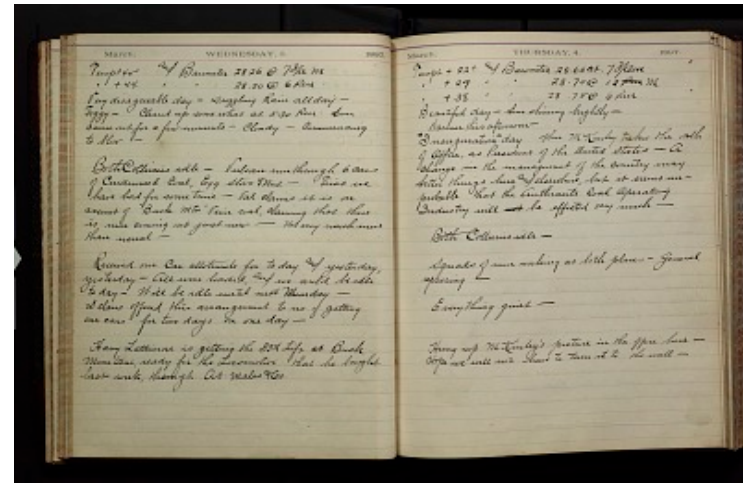 March. WEDNESDAY, 3. 1897.
Barometer 28.26 @ 7 o'clk
+ 44 " 28.20 @ 6 P.M.
Very disagreeable day - Drizzling Rain all day -
Foggy - Cleared up somewhat at 5:30 P.M. Sun
came out for a few minutes - Cloudy - Commencing
to blow -
Both Collieries idle - through 6 cars
of Condemned Coal, Egg Stove
have had for some time - claims it is on
account of "Buck Mtn" Vein coal, claiming that there
is more coming out just now - Not any much more
than usual -
Received our Car allotments for to day & yesterday,
yesterday - All were loaded, & we will be idle
to day - Will be idle until next Monday -
this arrangement to us of getting
our cars for two days in one day -
Harry is getting the at Buck
Mountain, ready for the Locomotive that he bought
last week, through
March. THURSDAY, 4. 1897.
Temp + 22° & Barometer 28.66 at 7 o'clk
+ 29 " 28.70 @ 12 M
+ 38 " 28.70 @ 6 P.M.
Beautiful day - Sun shining brightly -
Warmer this afternoon -
"Inauguration" day Wm McKinley takes the oath
of Office, as President of the United States - A
change - the management of the country may
better things here & elsewhere, but it seems im-
probable that the Anthracite Coal Operating
Industry will be effected very much -
Both Collieries idle -
Squads of men working at both places - General
repairing -
Everything quiet -
Hung up McKinley's picture in the office here -
Hope we will not have to turn it to the wall -